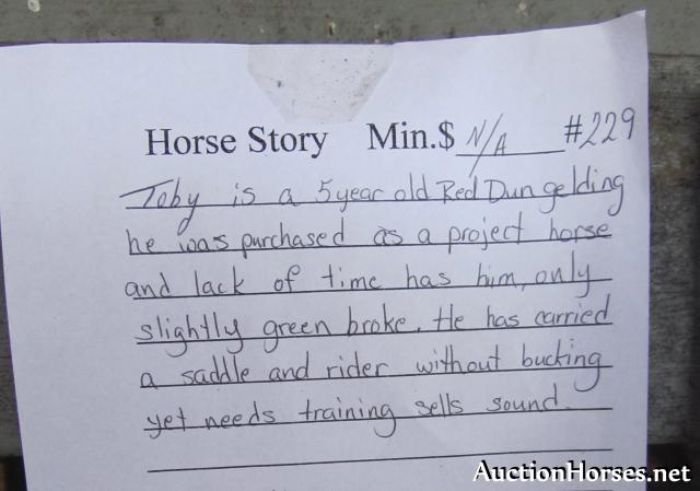 Horse Story Min.$ N/A #229
Toby is a 5 year old Red Dun gelding
he was purchased as a project horse
and lack of time has him, only
slightly green broke. He has carried
a saddle and rider without bucking
yet needs training sells sound.
AuctionHorses.net